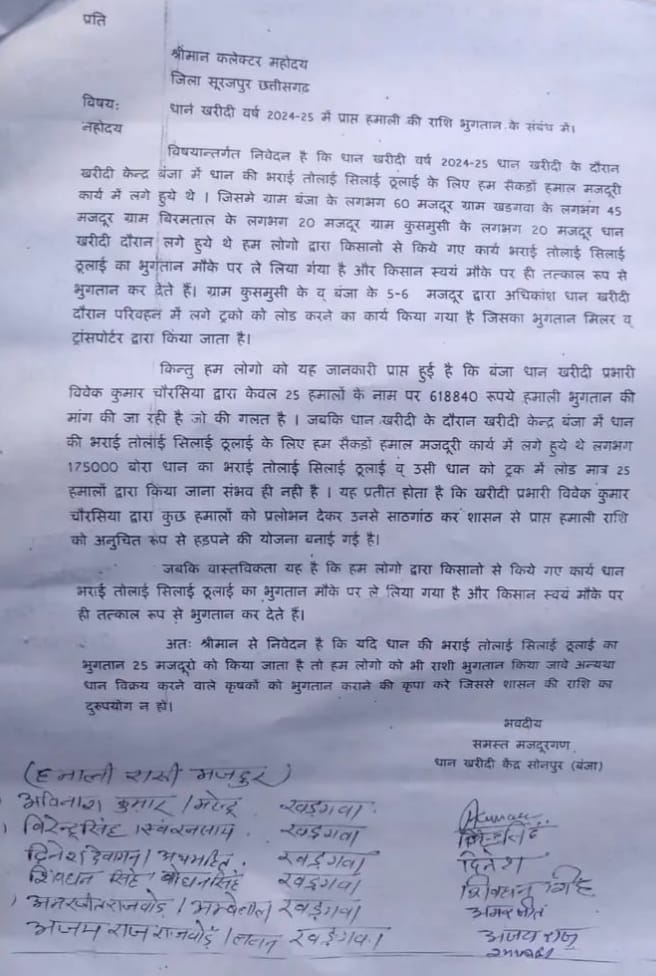 प्रति
श्रीमान कलेक्टर महोदय
जिला सूरजपुर छत्तीसगढ
विषय: धान खरीदी वर्ष 2024-25 में प्राप्त हमाली की राशि भुगतान के संबंध में।
महोदय
विषयान्तर्गत निवेदन है कि धान खरीदी वर्ष 2024-25 धान खरीदी के दौरान
खरीदी केन्द्र बंजा में धान की भराई तोलाई सिलाई ठूलाई के लिए हम सैकडों हमाल मजदूरी
कार्य में लगे हुये थे । जिसमे ग्राम बंजा के लगभग 60 मजदूर ग्राम खडगवा के लगभग 45
मजदूर ग्राम बिरमताल के लगभग 20 मजदूर ग्राम कुसमुसी के लगभग 20 मजदूर धान
खरीदी दौरान लगे हुये थे हम लोगो द्वारा किसानो से किये गए कार्य भराई तोलाई सिलाई
ठूलाई का भुगतान मौके पर ले लिया गया है और किसान स्वयं मौके पर ही तत्काल रूप से
भुगतान कर देते हैं। ग्राम कुसमुसी के व् बंजा के 5-6 मजदूर द्वारा अधिकांश धान खरीदी
दौरान परिवहन में लगे ट्रको को लोड करने का कार्य किया गया है जिसका भुगतान मिलर व्
ट्रांसपोर्टर द्वारा किया जाता है।
किन्तु हम लोगो को यह जानकारी प्राप्त हुई है कि बंजा धान खरीदी प्रभारी
विवेक कुमार चौरसिया द्वारा केवल 25 हमालों के नाम पर 618840 रूपये हमाली भुगतान की
मांग की जा रही है जो की गलत है । जबकि धान खरीदी के दौरान खरीदी केन्द्र बंजा में धान
की भराई तोलाई सिलाई ठूलाई के लिए हम सैकडों हमाल मजदूरी कार्य में लगे हुये थे लगभग
175000 बोरा धान का भराई तोलाई सिलाई ठूलाई व् उसी धान को ट्रक में लोड मात्र 25
हमालों द्वारा किया जाना संभव ही नही है । यह प्रतीत होता है कि खरीदी प्रभारी विवेक कुमार
चौरसिया द्वारा कुछ हमालों को प्रलोभन देकर उनसे साठगांठ कर शासन से प्राप्त हमाली राशि
को अनुचित रूप से हडपने की योजना बनाई गई है।
जबकि वास्तविकता यह है कि हम लोगो द्वारा किसानो से किये गए कार्य धान
भराई तोलाई सिलाई ठूलाई का भुगतान मौके पर ले लिया गया है और किसान स्वयं मौके पर
ही तत्काल रूप से भुगतान कर देते हैं।
अतः श्रीमान से निवेदन है कि यदि धान की भराई तोलाई सिलाई ठूलाई का
भुगतान 25 मजदूरो को किया जाता है तो हम लोगों को भी राशी भुगतान किया जावे अन्यथा
धान विक्रय करने वाले कृषकों को भुगतान कराने की कृपा करे जिससे शासन की राशि का
दुरूपयोग न हो।
भवदीय
समस्त मजदूरगण
धान खरीदी केंद्र सोनपुर (बंजा)
(हमाली राशी मजदुर)
अविनाश कुमार / खड़गवा
विरेन्द्र सिंह / खड़गवा
दिनेश देवागन / खड़गवा दिनेश
शिवधन सिंह बोधन सिंह खड़गवा शिवधन सिंह
अमरजीत राजवाड़े / खड़गवा अमरजीत
अजय राजवाड़े / ललन खड़गवा अजय